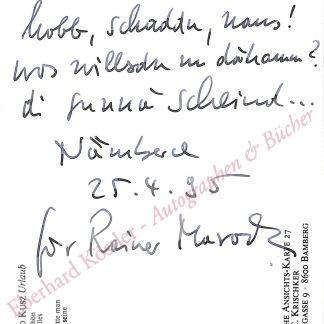 hobb, schaddn, naus!
wos willsdn in däham?
di sunnä scheind...
Nämberch
25.4.95
för Rainer Marod
Eberhard Köstler - Autographen & Bücher
Kusz Urlaub
HE ANSICHTS-KARTE 27
KRISCHKER
GASSE 9 · 8600 BAMBERG